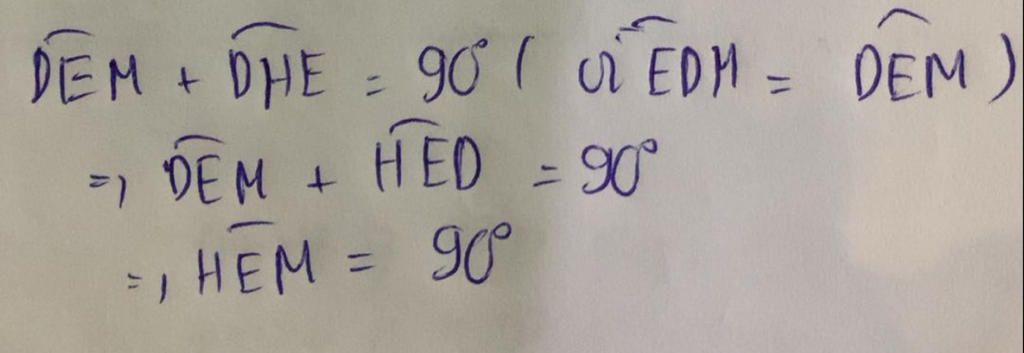 DEM + DHE = 90° ( vì EDM = DEM )
=, DEM + HED = 90°
=, HEM = 90°